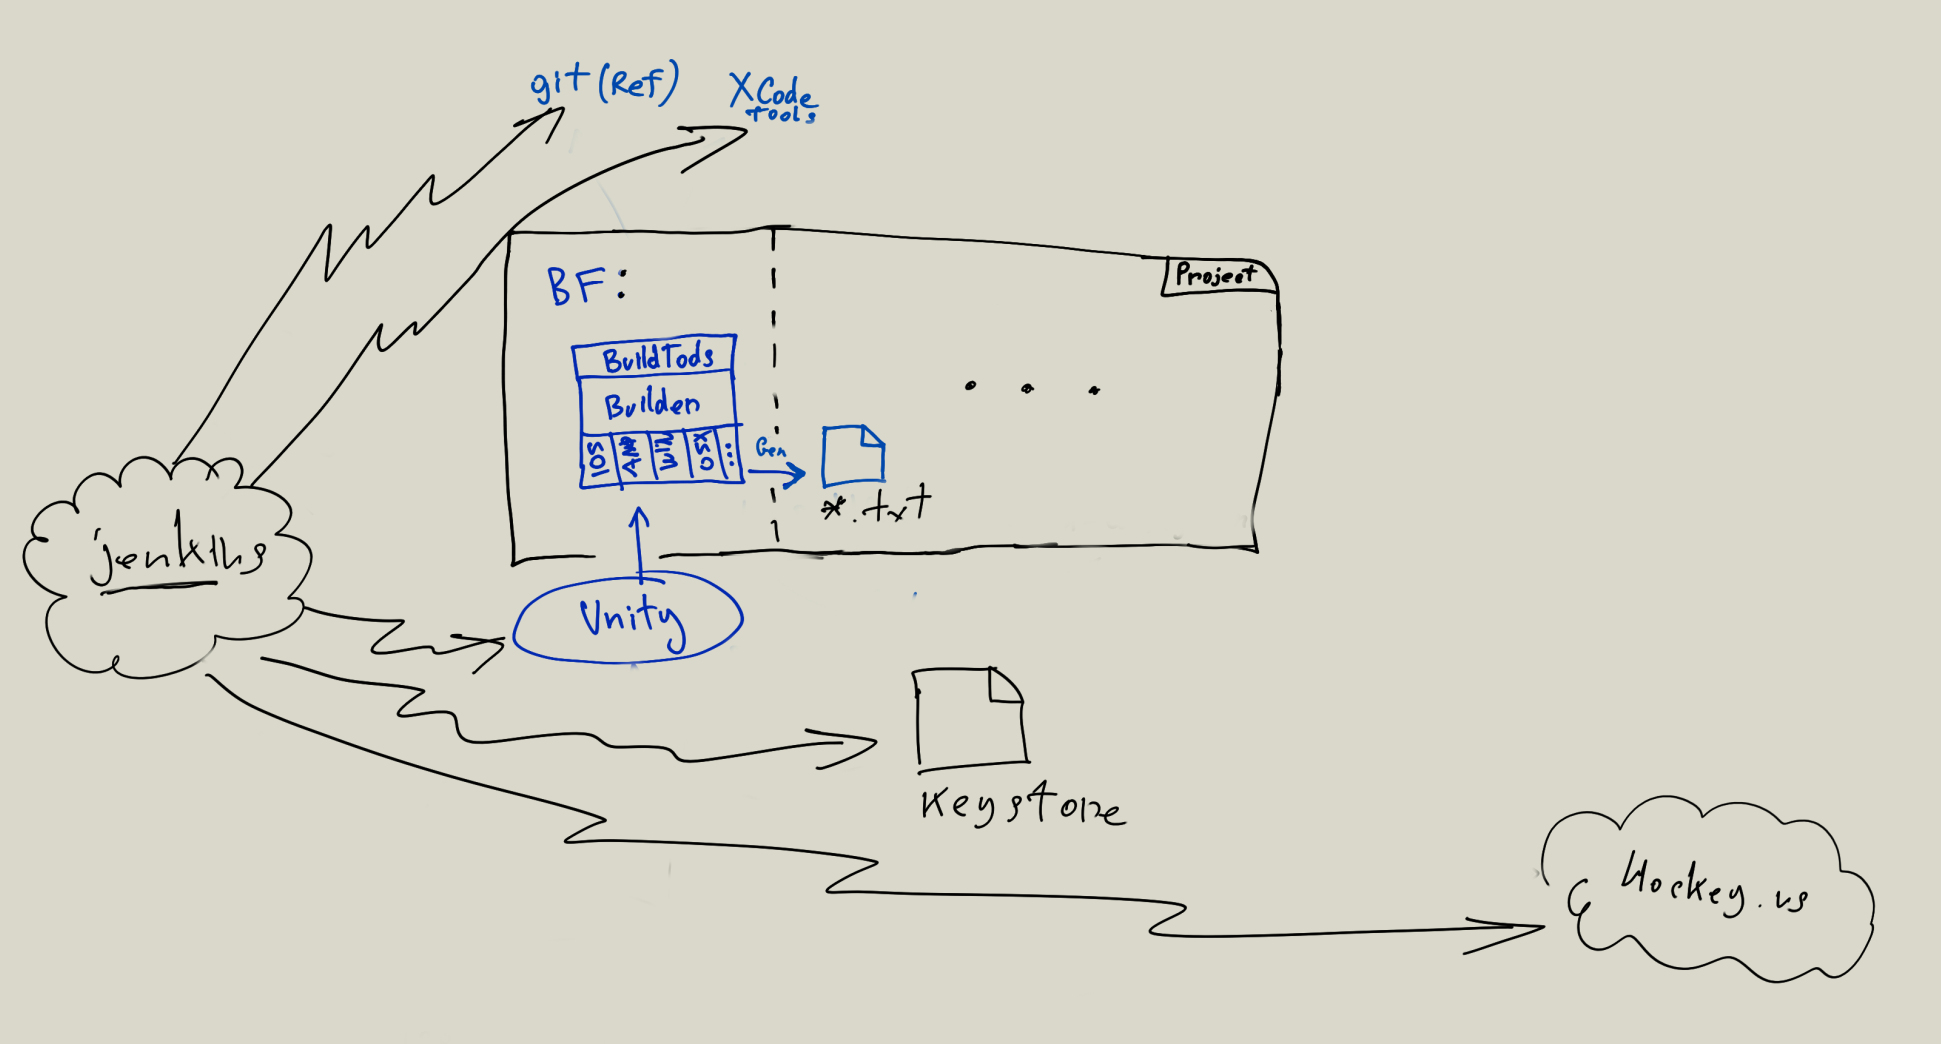 git (Ref)
XCode
Tools
Project
BF:
BuildTools
Builder
IOS
AND
WIN
OSX
...
Gen
*.txt
. . .
jenkins
Unity
Keystore
Hockey.us